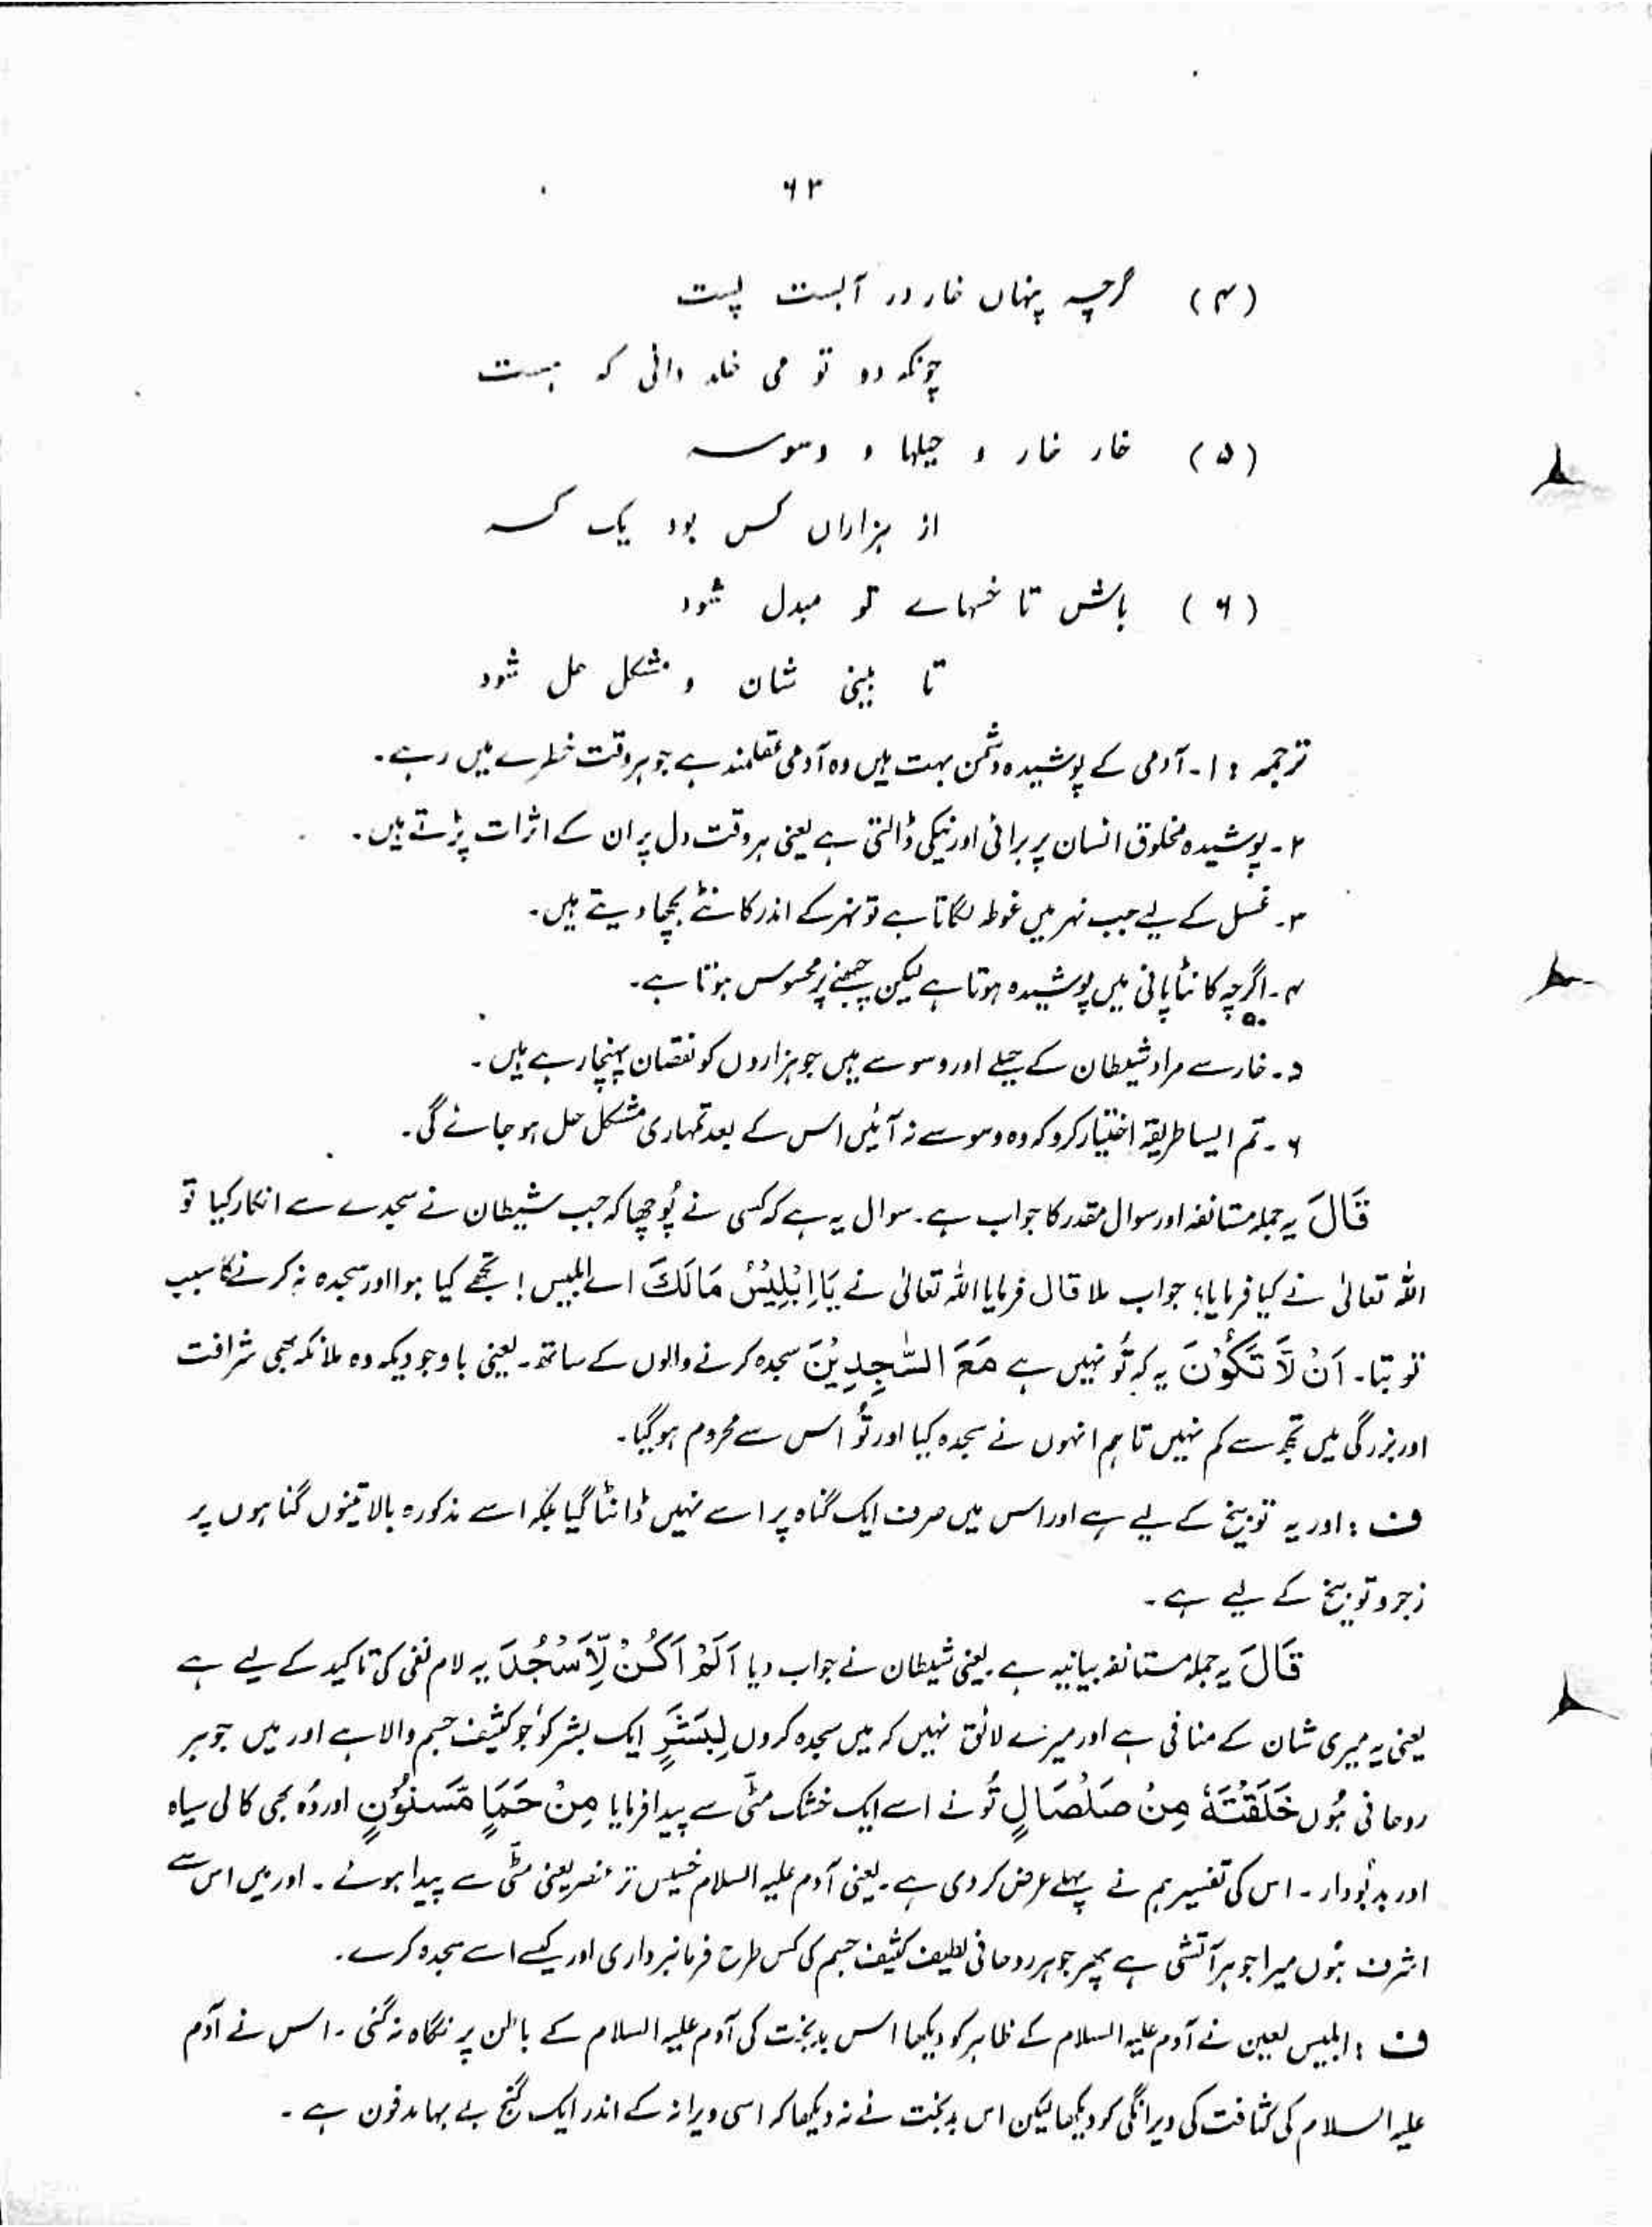 ۶۳
(۴) گرچہ پنہاں خار در آبست پست
چونکہ دو تو می خلد دانی کہ ہست
(۵) خار خار و حیلہا و وسوسہ
از ہزاراں کس بود یک کسہ
(۶) باش تا خسہاے تو مبدل شود
تا ببینی شان و مشکل حل شود
ترجمہ : ۱- آدمی کے پوشیدہ دشمن بہت ہیں وہ آدمی عقلمند ہے جو ہر وقت خطرے میں رہے۔
۲- پوشیدہ مخلوق انسان پر برائی اور نیکی ڈالتی ہے یعنی ہر وقت دل پر ان کے اثرات پڑتے ہیں۔
۳- غسل کے لیے جب نہر میں غوطہ لگاتا ہے تو نہر کے اندر کانٹے بچھا دیتے ہیں۔
۴- اگرچہ کانٹا پانی میں پوشیدہ ہوتا ہے لیکن چبھنے پر محسوس ہوتا ہے۔
۵- خار سے مراد شیطان کے حیلے اور وسوسے ہیں جو ہزاروں کو نقصان پہنچا رہے ہیں۔
۶- تم ایسا طریقہ اختیار کرو کہ وہ وسوسے نہ آئیں اس کے بعد تمہاری مشکل حل ہو جائے گی۔
قَالَ یہ جملہ مستانفہ اور سوال مقدر کا جواب ہے۔ سوال یہ ہے کہ کسی نے پُوچھا کہ جب شیطان نے سجدے سے انکار کیا تو
اللہ تعالیٰ نے کیا فرمایا؟ جواب ملا قال فرمایا اللہ تعالیٰ نے یَا اِبْلِیْسُ مَالَکَ اے ابلیس! تجھے کیا ہوا اور سجدہ نہ کرنے کا سبب
تو بتا۔ اَنْ لَّا تَکُوْنَ یہ کہ تُو نہیں ہے مَعَ السّٰجِدِیْنَ سجدہ کرنے والوں کے ساتھ۔ یعنی باوجودیکہ وہ ملائکہ بھی شرافت
اور بزرگی میں تجھ سے کم نہیں تاہم انہوں نے سجدہ کیا اور تُو اس سے محروم ہو گیا۔
ف : اور یہ توبیخ کے لیے ہے اور اس میں صرف ایک گناہ پر اسے نہیں ڈانٹا گیا بلکہ اسے مذکورہ بالا تینوں گناہوں پر
زجر و توبیخ کے لیے ہے۔
قَالَ یہ جملہ مستانفہ بیانیہ ہے۔ یعنی شیطان نے جواب دیا اَلَمْ اَکُنْ لِّاَسْجُدَ یہ لام نفی کی تاکید کے لیے ہے
یعنی یہ میری شان کے منافی ہے اور میرے لائق نہیں کہ میں سجدہ کروں لِبَشَرٍ ایک بشر کو جو کثیف جسم والا ہے اور میں جوہر
روحانی ہُوں خَلَقْتَہٗ مِنْ صَلْصَالٍ تُو نے اسے ایک خشک مٹی سے پیدا فرمایا مِنْ حَمَاٍ مَّسْنُوْنٍ اور وُہ بھی کالی سیاہ
اور بدبُودار۔ اس کی تفسیر ہم نے پہلے عرض کر دی ہے۔ یعنی آدم علیہ السلام خسیس تر عنصر یعنی مٹی سے پیدا ہوئے۔ اور میں اس سے
اشرف ہُوں میرا جوہر آتشی ہے پھر جوہر روحانی لطیف کثیف جسم کی کس طرح فرمانبرداری اور کیسے اسے سجدہ کرے۔
ف : ابلیس لعین نے آدم علیہ السلام کے ظاہر کو دیکھا اس بدبخت کی آدم علیہ السلام کے باطن پر نگاہ نہ گئی۔ اس نے آدم
علیہ السلام کی کثافت کی ویرانگی کو دیکھا لیکن اس بدبخت نے نہ دیکھا کہ اسی ویرانہ کے اندر ایک گنج بے بہا مدفون ہے۔